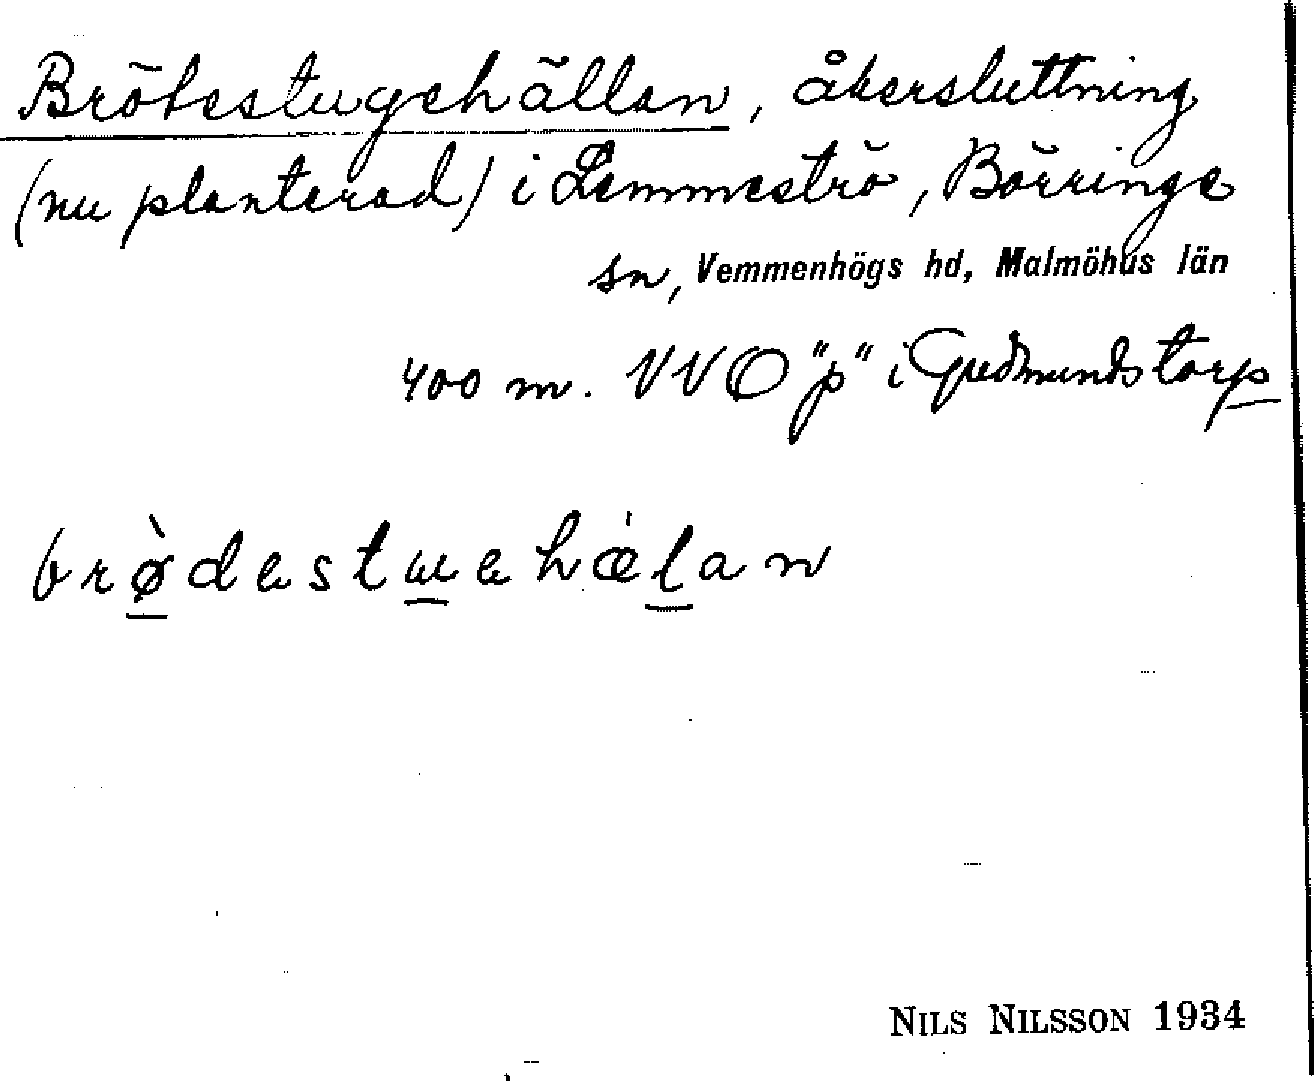 Brötestugehällan, åkersluttning
(nu planterad) i Lemmeströ, Börringe
sn, Vemmenhögs hd, Malmöhus län
400 m. VVO "p" i Gudmundstorp
brø̀destɯehæ̍lan
NILS NILSSON 1934